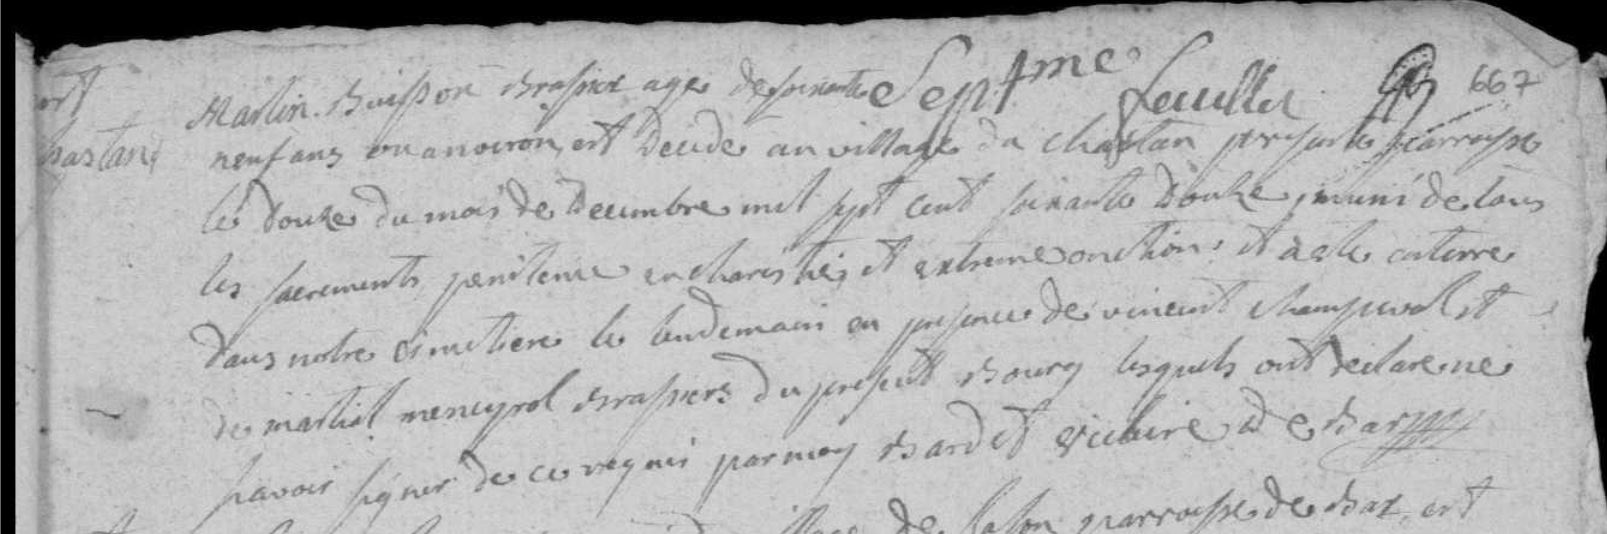 Septme feuillet 667
Martin Buisson Brassier agé de soixante
neuf ans ou anviron, est decedé au village du Chastan presente parroisse
le douze du mois de decembre mil sept cent soixante douze, muni de tous
les sacrements, penitence eucharistie, et extremeonction, et a esté enterre
dans notre cimetiere le lendemain en presence de vincent Champeval et
de martial meneyrol brassiers du present Bourg lesquels ont declare ne
savoir signer de ce requis par moy Bardet vicaire de Bar
de parroisse de Bar, est